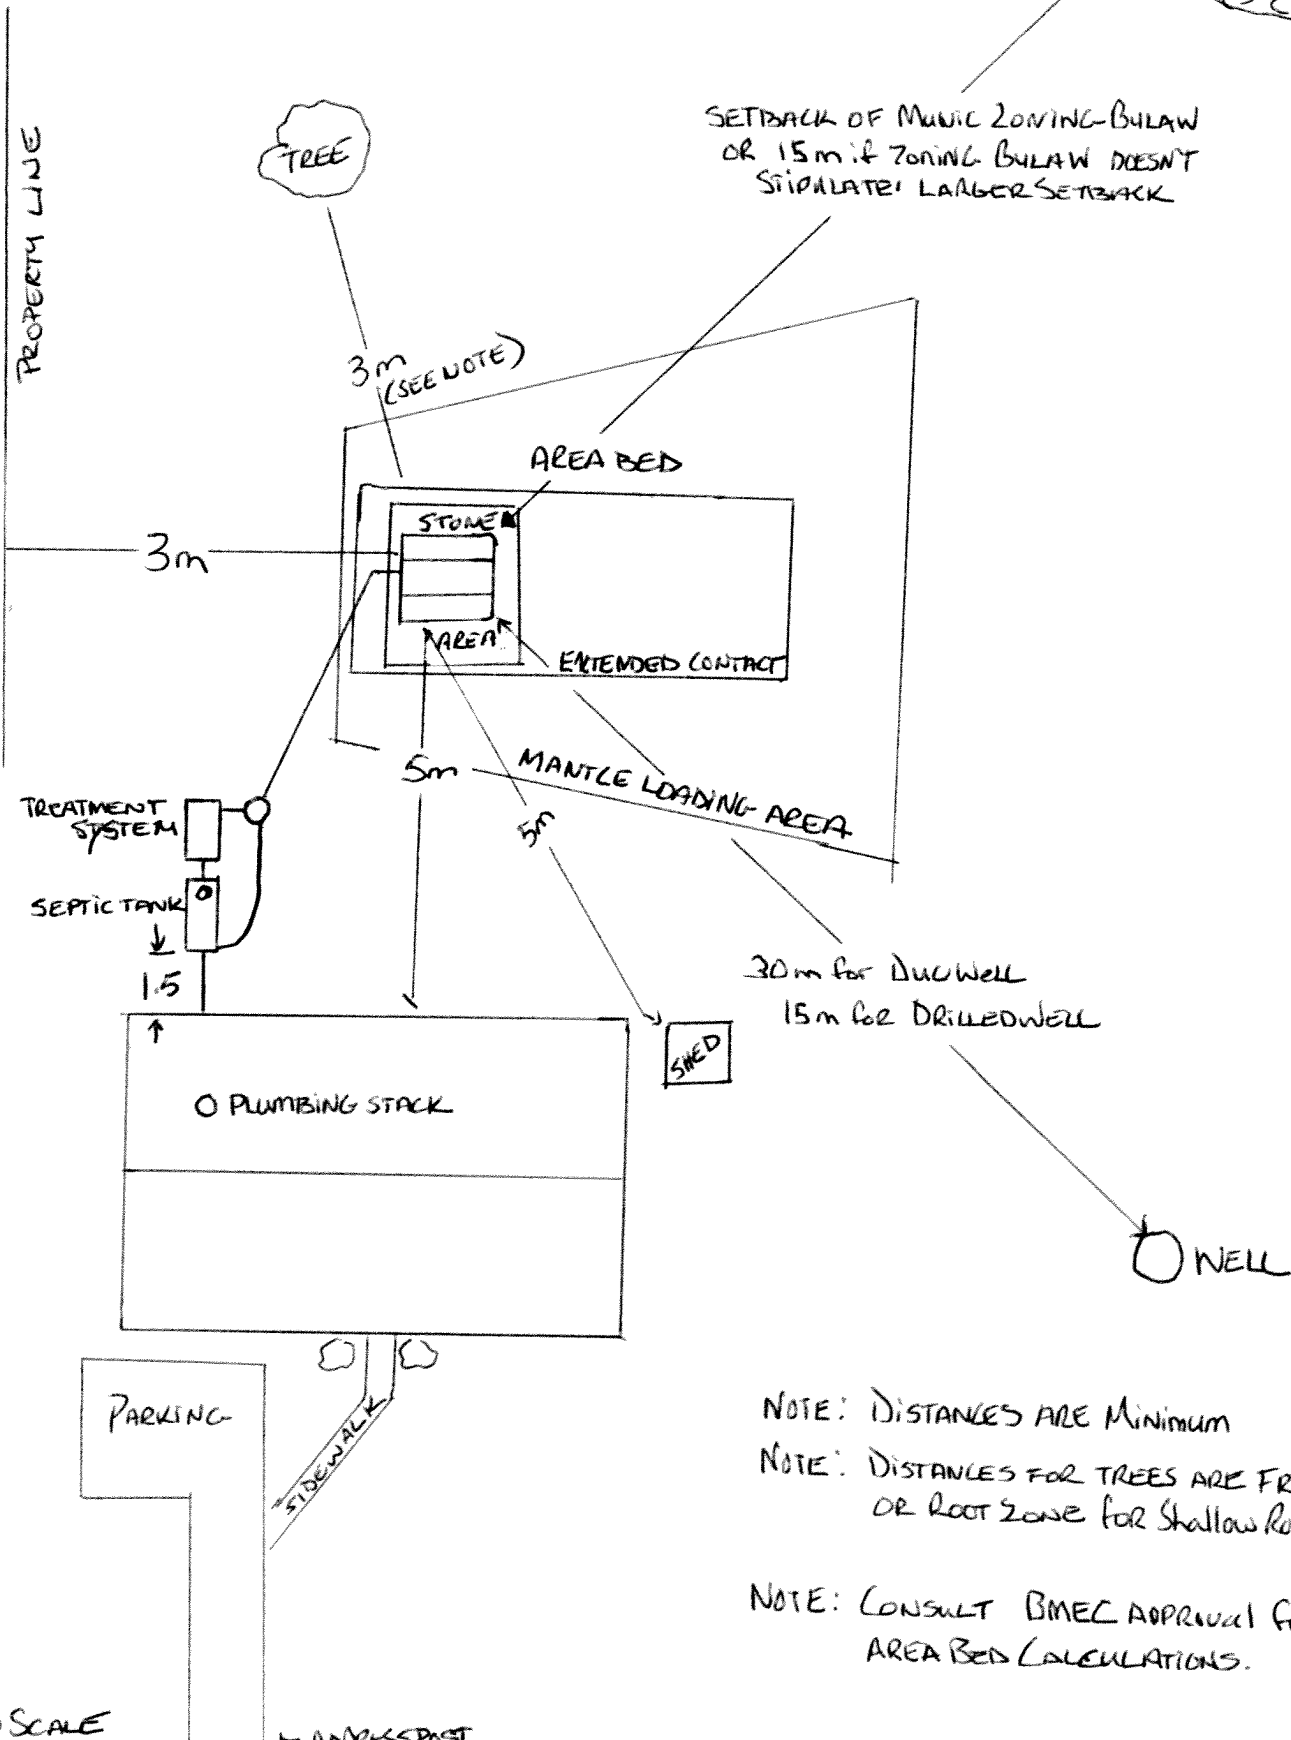 PROPERTY LINE
TREE
SETBACK OF MUNIC ZONING BYLAW
OR 15m if ZONING BYLAW DOESN'T
STIPULATE LARGER SETBACK
3m
(SEE NOTE)
AREA BED
STONE
3m
AREA
EXTENDED CONTACT
5m
MANTLE LOADING AREA
5m
TREATMENT
SYSTEM
SEPTIC TANK
1.5
30m for DUG WELL
15m for DRILLED WELL
SHED
PLUMBING STACK
WELL
PARKING
SIDEWALK
NOTE: DISTANCES ARE MINIMUM
NOTE: DISTANCES FOR TREES ARE FR
OR ROOT ZONE for Shallow Ro
NOTE: CONSULT BMEC APPROVAL f
AREA BED CALCULATIONS.
SCALE